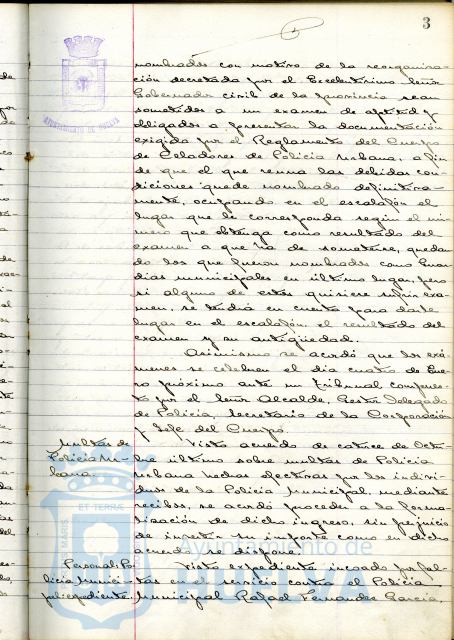 3
nombrados con motivo de la reorganiza-
ción decretada por el Excelentísimo Señor
Gobernador civil de la provincia sean
sometidos a un examen de aptitud y
obligados a presentar la documentación
exigida por el Reglamento del Cuerpo
de Celadores de Policia Urbana, a fin
de que el que reuna las debidas con-
diciones quede nombrado definitiva-
mente, ocupando en el escalafón el
lugar que le corresponda según el nú-
mero que obtenga como resultado del
examen a que ha de someterse, quedan-
do los que fueron nombrados como Guar-
dias municipales en último lugar, pero
si alguno de estos quisiere sufrir exa-
men, se tendrá en cuenta para darle
lugar en el escalafón, el resultado del
examen y su antigüedad.
Asimismo se acordó que los exá-
menes se celebren el dia cuatro de Ene-
ro próximo ante un Tribunal compues-
to por el Señor Alcalde, Gestor Delegado
de Policia, Secretario de la Corporación
y Jefe del Cuerpo.
Multas de
Policia Ur-
bana.
Visto acuerdo de catorce de Octu-
bre último sobre multas de Policia
Urbana hechas efectivas por los indivi-
duos de la Policia Municipal, mediante
recibos, se acordó proceder a la forma-
lización de dicho ingreso, sin perjuicio
de su importe como en dicho
acuerdo se dispone.
Personal: Po-
licia Munici-
pal: expediente.
Visto expediente incoado por fal-
tas en el servicio contra el Policia
Municipal Rafael Fernandez Garcia,
AYUNTAMIENTO DE HUELVA
Ayuntamiento de
HUELVA